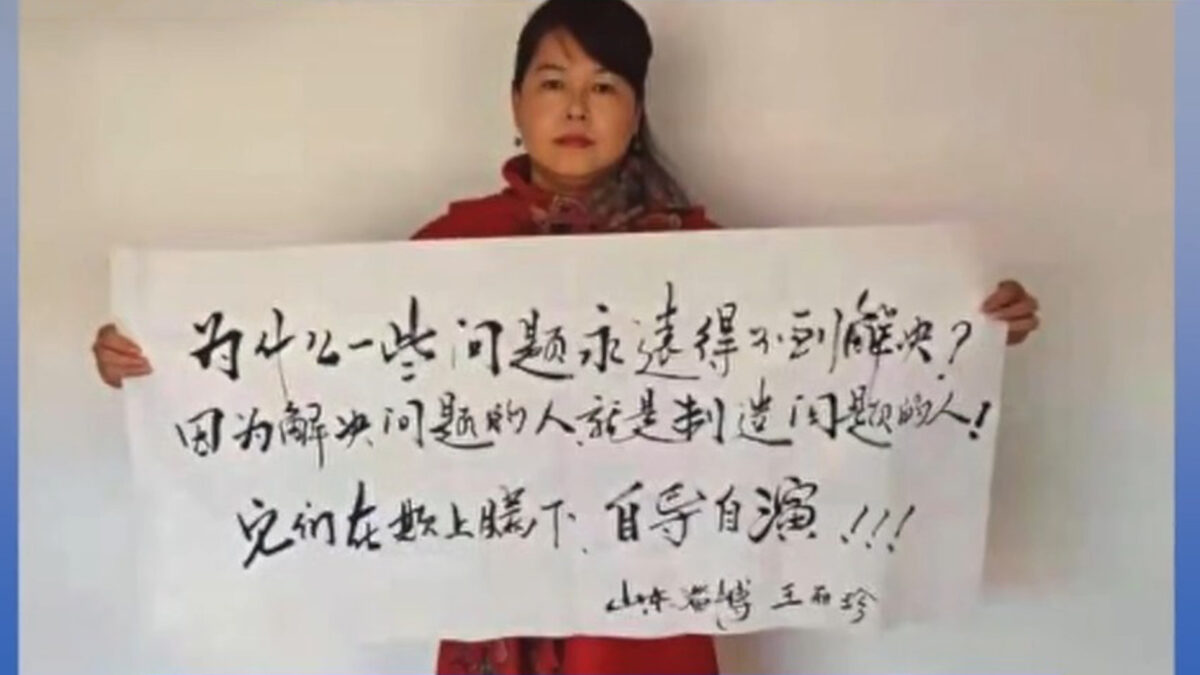 为什么一些问题永遠得不到解决?
因为解决问题的人,就是制造问题的人!
它们在欺上瞒下、自导自演!!!
山东淄博